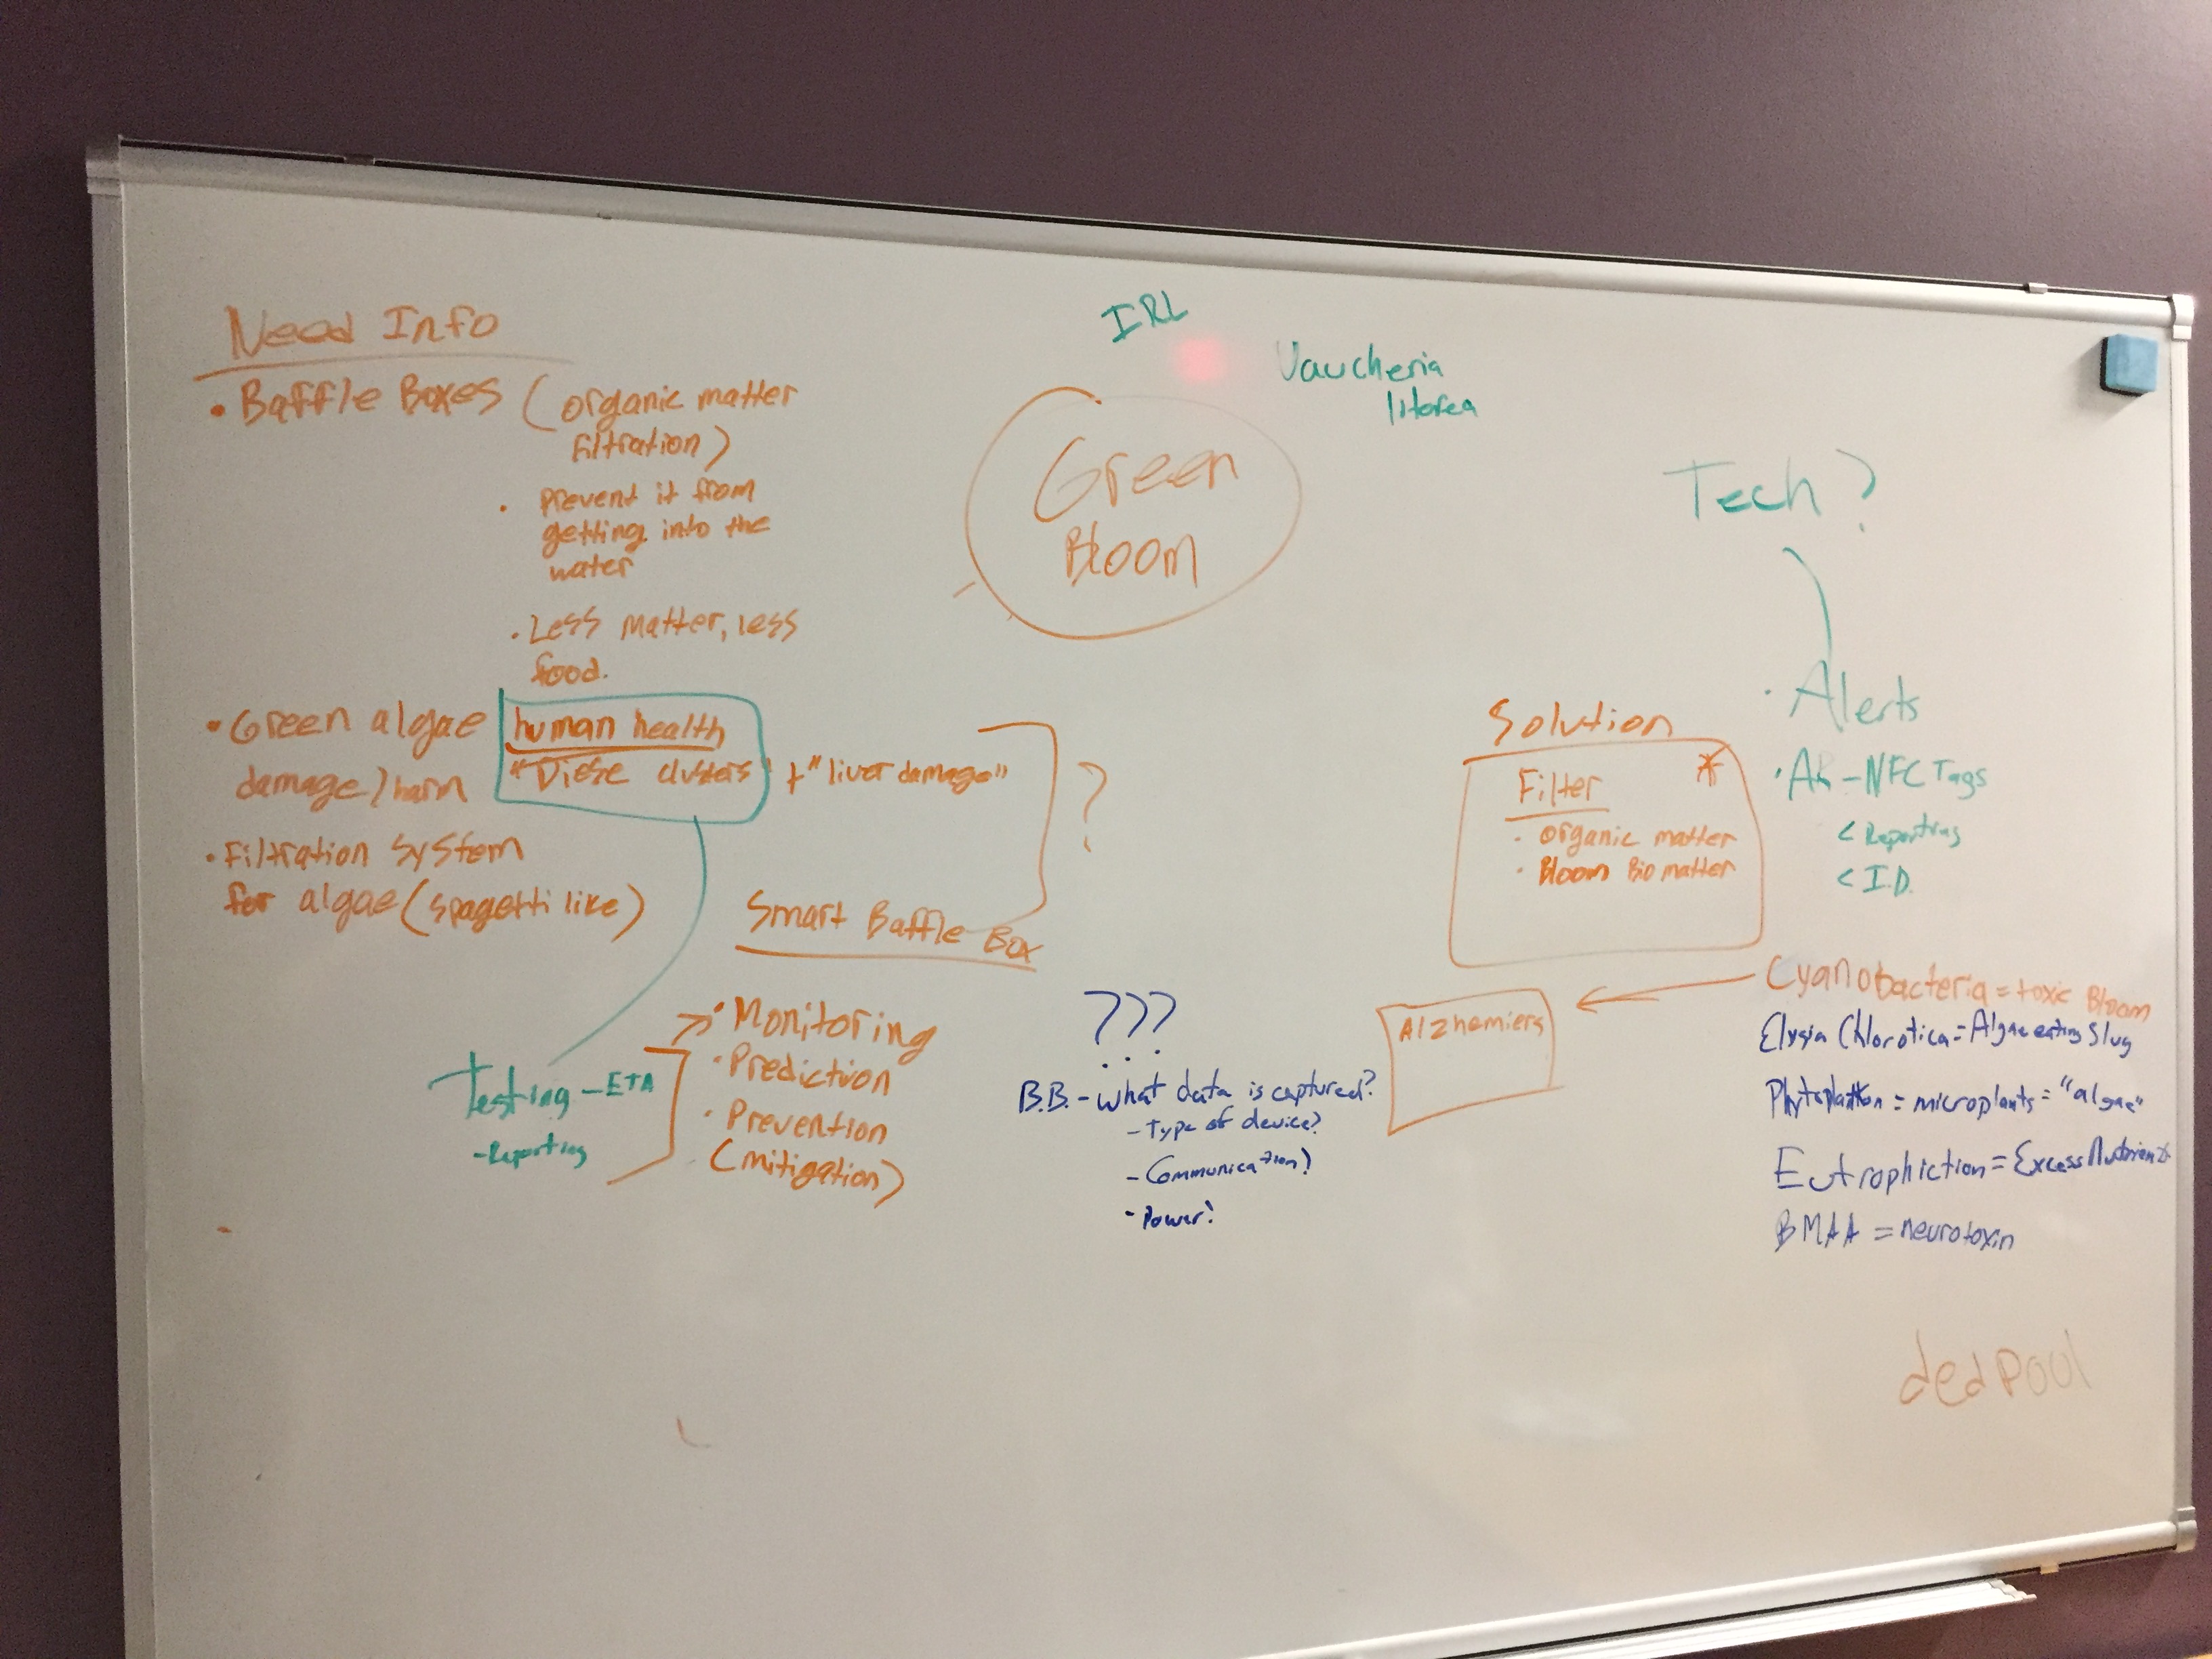 Need Info
• Baffle Boxes (organic matter
filtration)
• Prevent it from
getting into the
water
• Less matter, less
food.
• Green algae
damage/harm
human health
clusters" + "liver damage"
?
• Filtration System
for algae (spagetti like)
Smart Baffle Box
Testing - ETA
- Reporting
• Monitoring
• Prediction
• Prevention
(mitigation)
IRL
Vaucheria
litorea
Green
Bloom
???
B.B. - what data is captured?
- Type of device?
- Communication?
- Power?
Tech?
• Alerts
- NFC Tags
< Reporting
< I.D.
Solution
Filter *
- organic matter
- Bloom Bio matter
Alzhemiers
Cyanobacteria = toxic Bloom
Elysia Chlorotica = Algae eating Slug
= microplants = "algae"
Eutrophiction = Excess Nutrients
BMAA = neurotoxin
dedpool